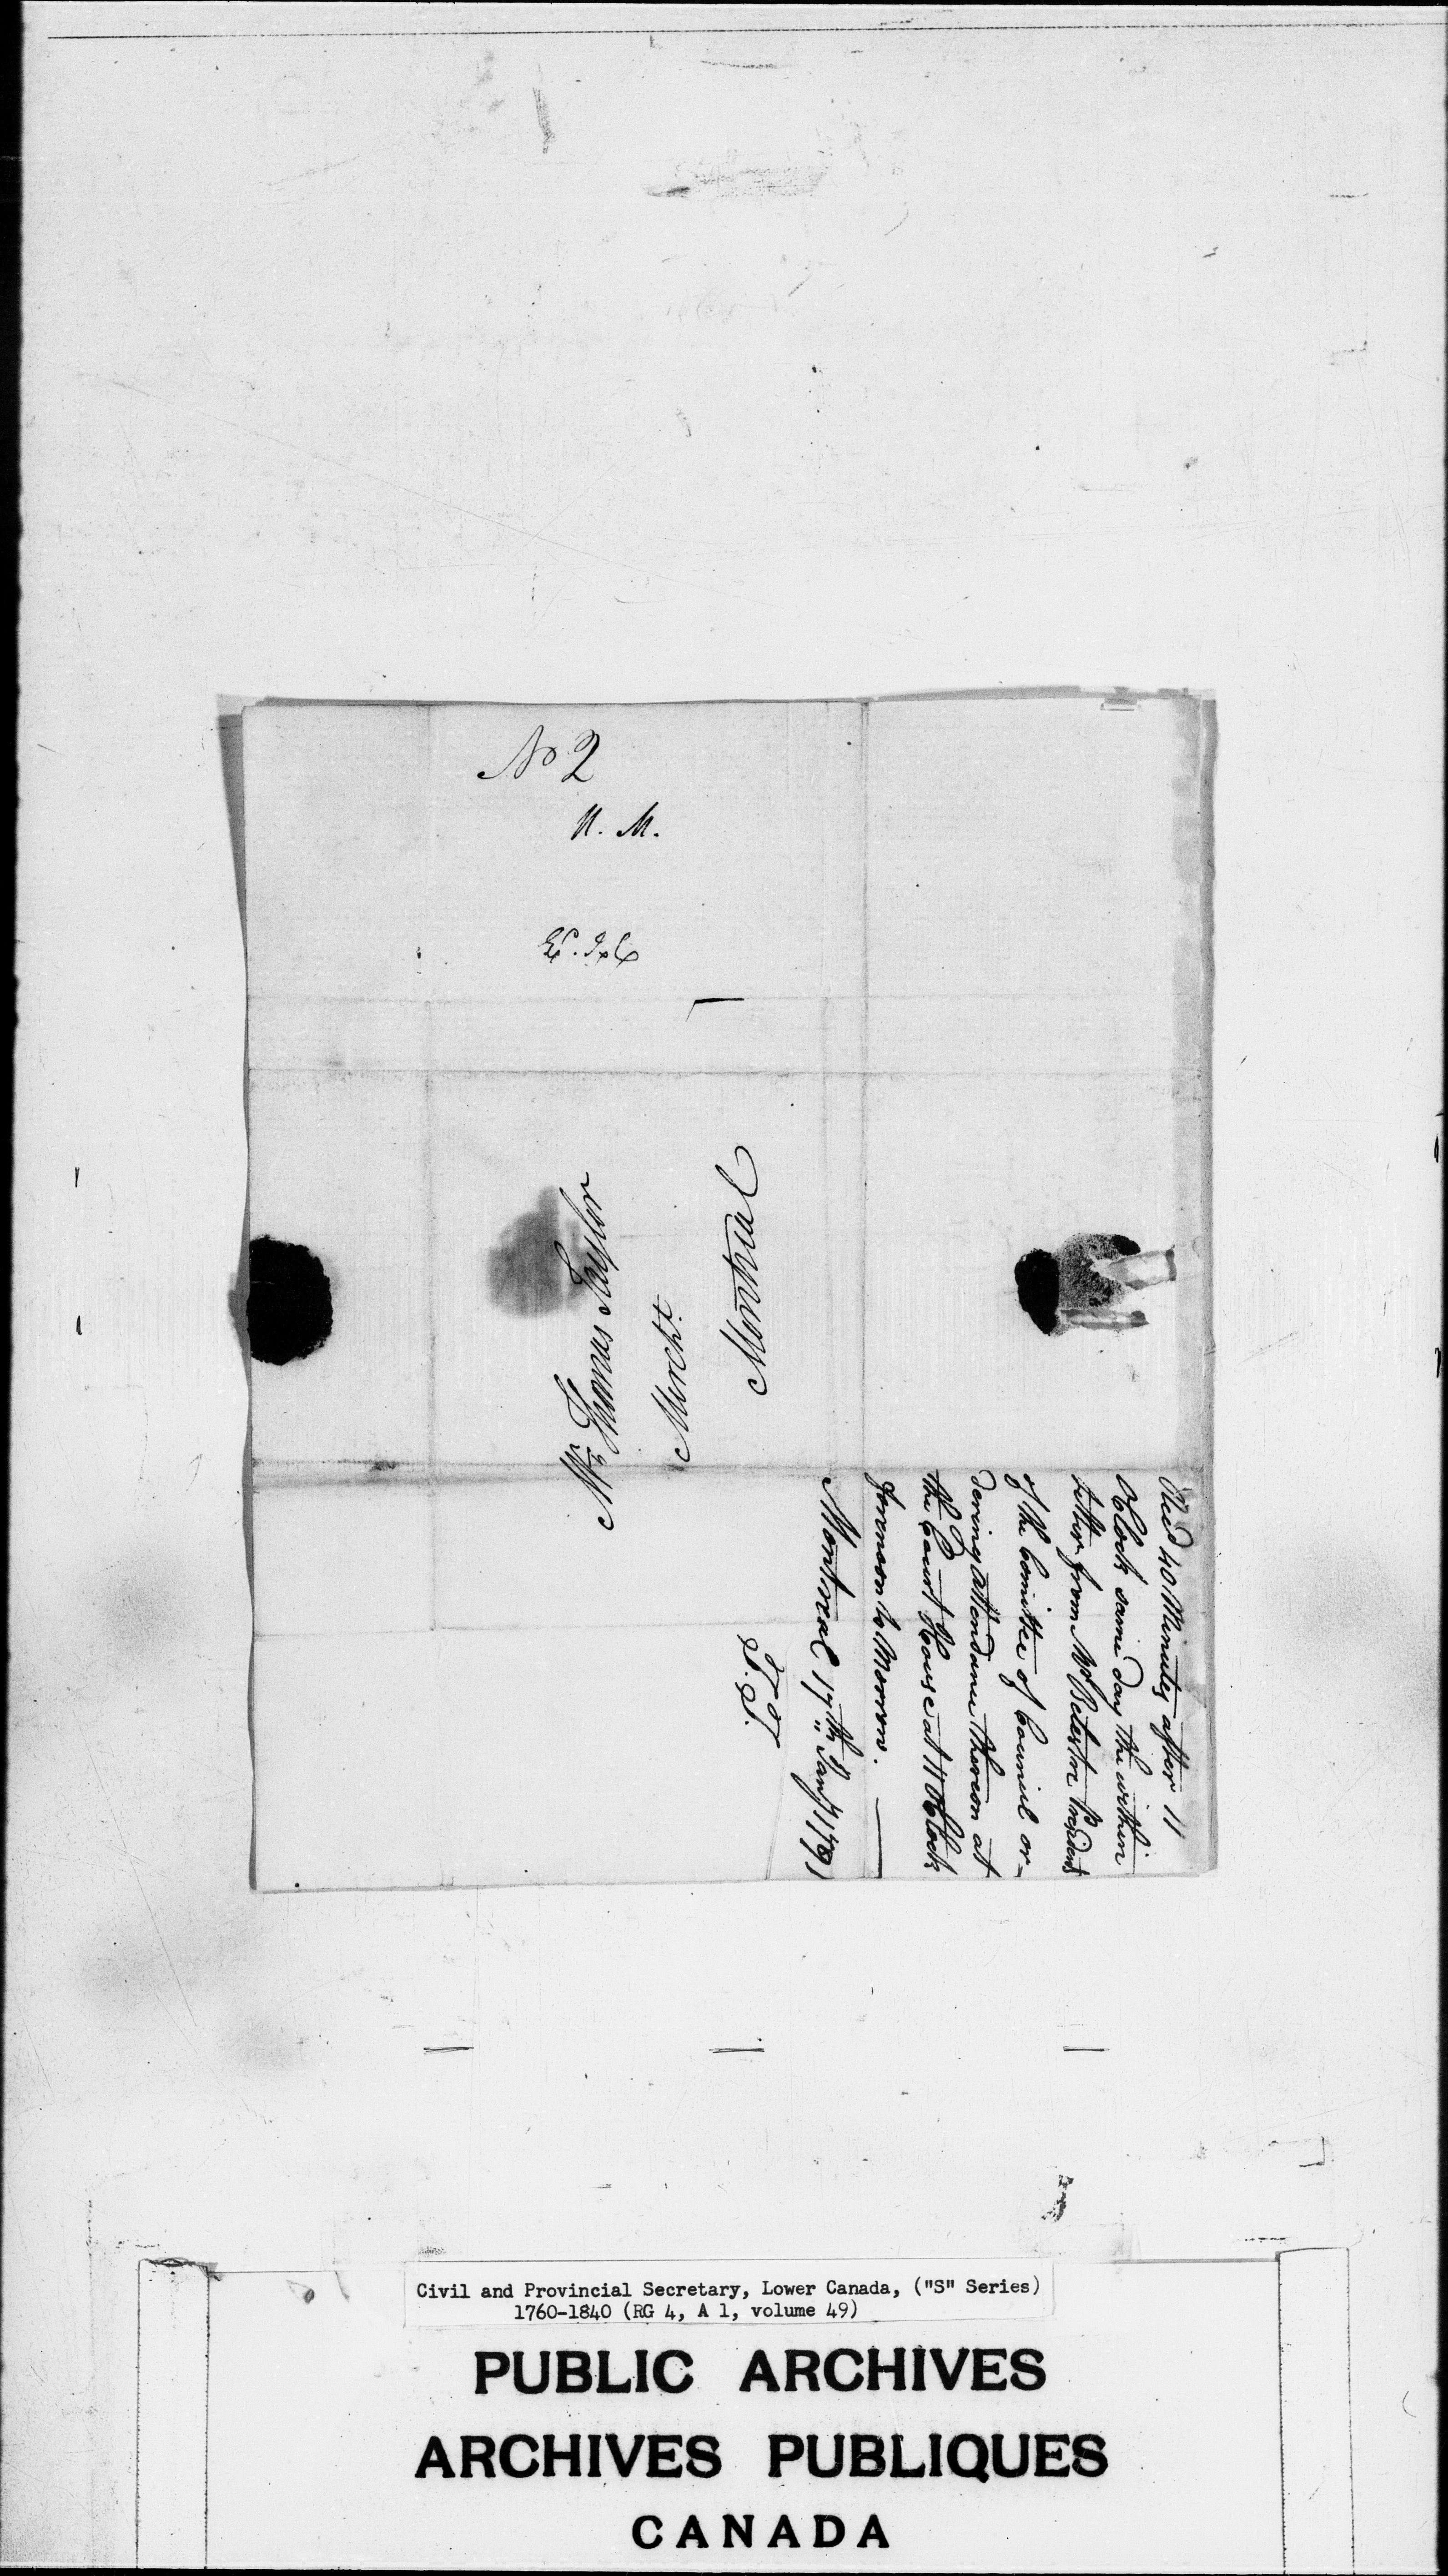 No 2
N. M.
Mr. Thomas Taylor
Mercht.
Montreal
Recd 40 Minutes after 11
OClock same day the within
Letter from Mr
of the Comittee of Council or-
dering attendance thereon at
the Court House at 11 OClock
forenoon to Morrow.
Montreal 17th Jany 1791
T.T.
Civil and Provincial Secretary, Lower Canada, ("S" Series)
1760-1840 (RG 4, A 1, volume 49)
PUBLIC ARCHIVES
ARCHIVES PUBLIQUES
CANADA